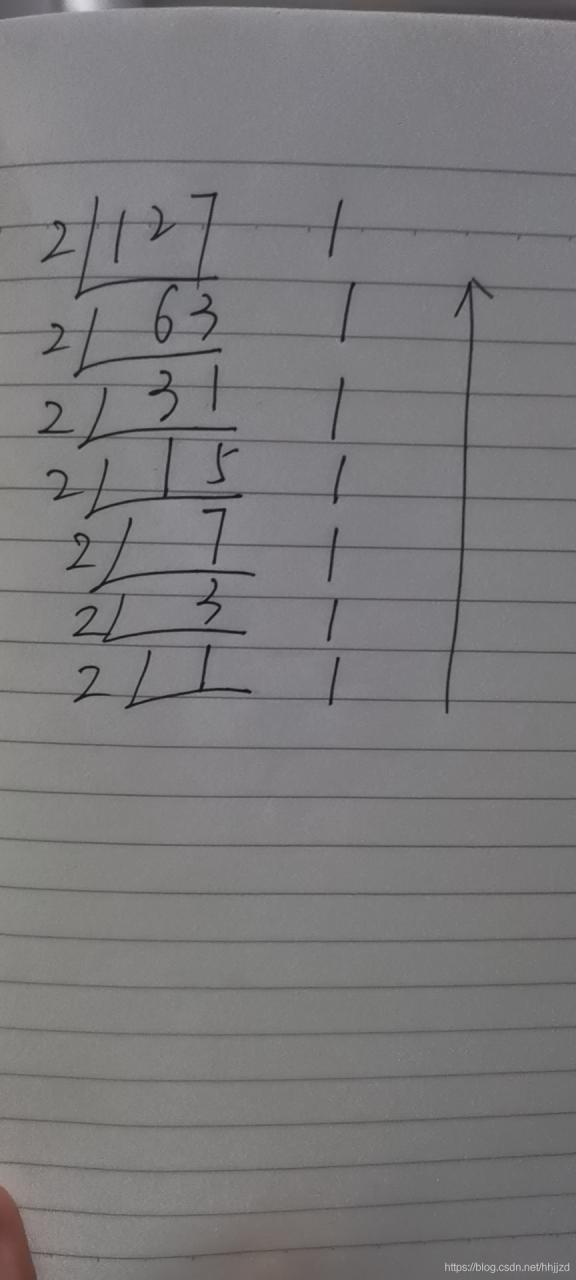 2 127 1
2 63 1
2 31 1
2 15 1
2 7 1
2 3 1
2 1 1
https://blog.csdn.net/hhjjzd